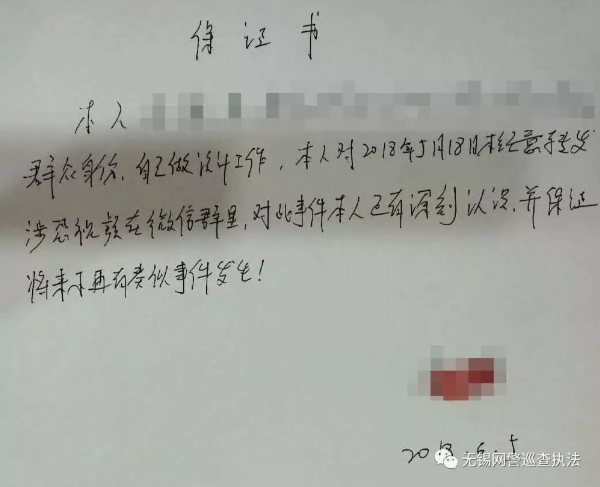 保证书
本人
群众身份，自己做设计工作，本人对2018年5月18日不经意转发
涉恐视频在微信群里，对此事件本人已有深刻认识，并保证
将来不再有类似事件发生！
2018.6.5
无锡网警巡查执法